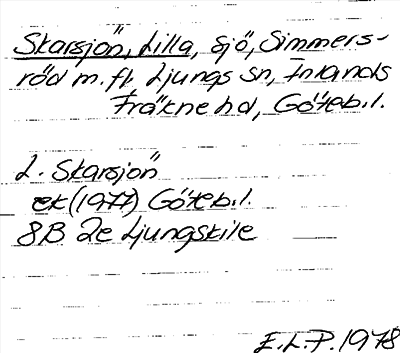 Skarsjön, Lilla, sjö, Simmers-
röd m.fl. Ljungs sn, Inlands
Fräkne hd, Göteb.l.
L. Skarsjön
ek (1977) Göteb.l.
8B 2e Ljungskile
E.L.P. 1978